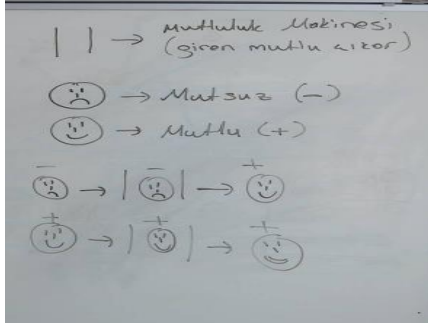 | | → Mutluluk Makinesi
(giren mutlu çıkar)
→ Mutsuz (-)
→ Mutlu (+)
- → | - | → +
+ → | + | → +